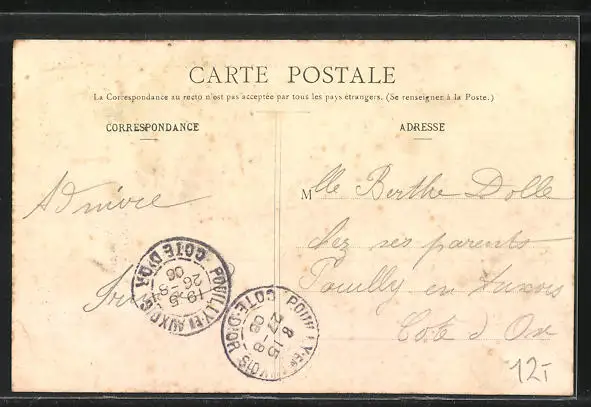 CARTE POSTALE
La Correspondance au recto n'est pas acceptée par tous les pays étrangers. (Se renseigner à la Poste.)
CORRESPONDANCE
ADRESSE
Mlle Berthe Dolle
chez ses parents
Pouilly en Auxois
Cote d Or
POUILLY-EN-AUXOIS
COTE-D'OR
26-8
POUILLY-EN-AUXOIS
COTE-D'OR
8 15
27-8
12,-